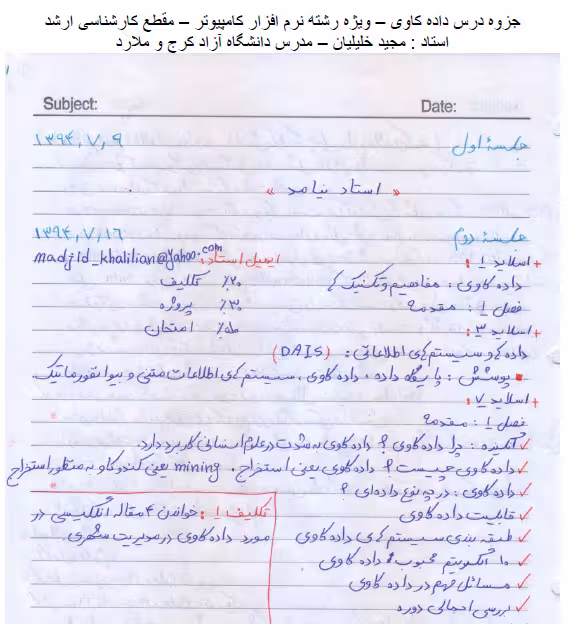 جزوه درس داده کاوی – ویژه رشته نرم افزار کامپیوتر – مقطع کارشناسی ارشد
استاد : مجید خلیلیان – مدرس دانشگاه آزاد کرج و ملارد
Subject: Date:
جلسهٔ اول ۱۳۹۴,۷,۹
« استاد نیامد »
جلسهٔ دوم ۱۳۹۴,۷,۱۶
+ اسلاید ۱: ایمیل استاد: madjid_khalilian@yahoo.com
داده کاوی: مفاهیم و تکنیک ها ۲۰٪ تکلیف
فصل ۱: مقدمه ۳۰٪ پروژه
+ اسلاید ۳: ۵۰٪ امتحان
داده ها و سیستم های اطلاعاتی: (DAIS)
پوشش: پایگاه داده، داده کاوی، سیستم های اطلاعات متنی و بیوانفورماتیک
+ اسلاید ۷:
فصل ۱: مقدمه
✓ انگیزه: چرا داده کاوی؟ داده کاوی به شدت در علوم انسانی کاربرد دارد.
✓ داده کاوی چیست؟ داده کاوی یعنی استخراج. mining یعنی کندوکاو به منظور استخراج
✓ داده کاوی: در چه نوع داده ای؟
✓ قابلیت داده کاوی
✓ طبقه بندی سیستم های داده کاوی
✓ ۱۰ الگوریتم محبوب داده کاوی
✓ مسائل مهم در داده کاوی
✓ بررسی اجمالی دوره
تکلیف ۱: خواندن ۴ مقاله انگلیسی در
مورد داده کاوی در مدیریت شهری.